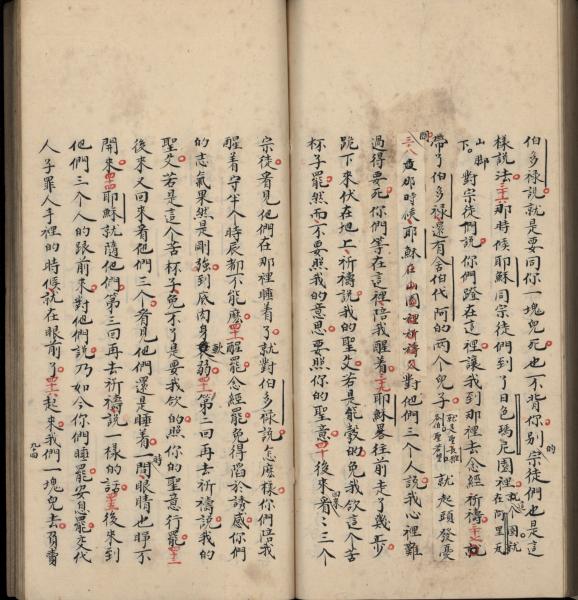 伯多祿說就是要同你一塊兒死也不背你別宗徒們也是這
樣說法三十六那時候耶穌同宗徒們到了日色瑪尼園裡就
下對宗徒們說你們蹬在這裡讓我到那裡去念經祈禱三十七
帶了伯多祿還有舍伯代阿的两个兒子就起頭發憂
三十八那時候耶穌在山園裡祈禱對他們三个人說我心裡難
過得要死你們等在這裡陪我醒着三十九耶穌畧往前走了幾步
跪下來伏在地上祈禱說我的聖父若是能彀的免我飲這个苦
杯子罷然而不要照我的意思要照你的聖意四十後來看三个
宗徒看見他們在那裡睡着了就對伯多祿說怎麽樣你們陪我
醒着守半个時辰都不能麽四十一醒罷念經罷免得陷於誘感你們
的志氣果然是剛強到底肉身軟弱四十二第二回再去祈禱說我的
聖父若是這个苦杯子免不了是要我飲的照你的聖意行罷四十三
後來又回來看他們三个看見他們還是睡着一問眼睛也睜不
開來四十四耶穌就隨他們第三回再去祈禱說一樣的話四十五後來到
他們三个人的跟前來對他們說乃如今你們睡罷安息罷交代
人子罪人手裡的時候就在眼前了四十六起來我們一塊兒去負賣